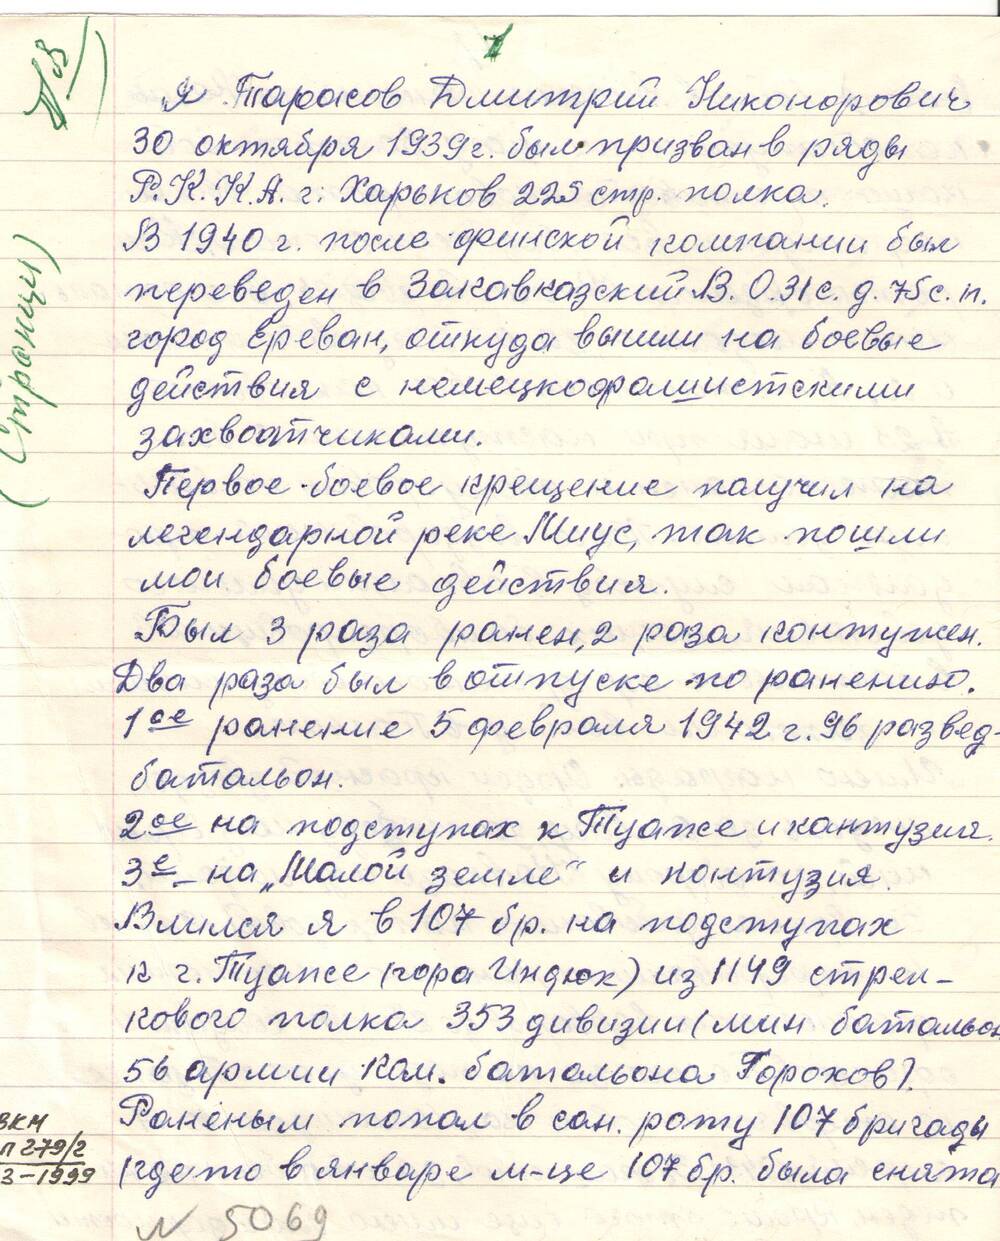 1
„Я Тарасов Дмитрий Никонорович
30 октября 1939 г. был призван в ряды
Р.К.К.А. г. Харьков 225 стр. полка.
В 1940 г. после финской компании был
переведен в Закавказский В.О. 31 с. д. 75 с. п.
город Ереван, откуда вышли на боевые
действия с немецкофашистскими
захвоатчиками.
Первое боевое крещение получил на
легендарной реке Миус, так пошли
мои боевые действия.
Был 3 раза ранен, 2 раза контужен.
Два раза был в отпуске по ранению.
1ое ранение 5 февраля 1942 г. 96 развед-
батальон.
2ое на подступах к Туапсе и кантузия.
3е – на „Малой земле" и контузия.
Влился я в 107 бр. на подступах
к г. Туапсе (гора Индюк) из 1149 стрел-
кового полка 353 дивизии (мин батальон
56 армии Ком. батальона Горохов).
Раненым попал в сан. роту 107 бригады
(где то в январе м-це 107 бр. была снята
(Страници)
ВКМ
П 279/2
3-1999
N 5069